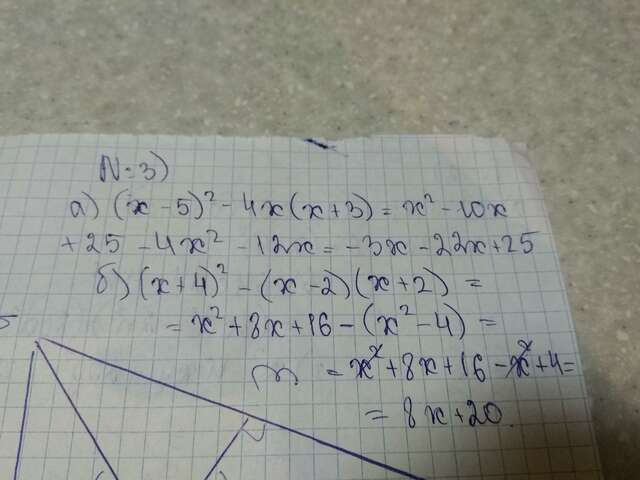 N=3)
а) (x-5)² - 4x(x+3) = x² - 10x
+25 - 4x² - 12x = -3x - 22x + 25
б) (x+4)² - (x-2)(x+2) =
= x² + 8x + 16 - (x² - 4) =
= x² + 8x + 16 - x² + 4 =
= 8x + 20.